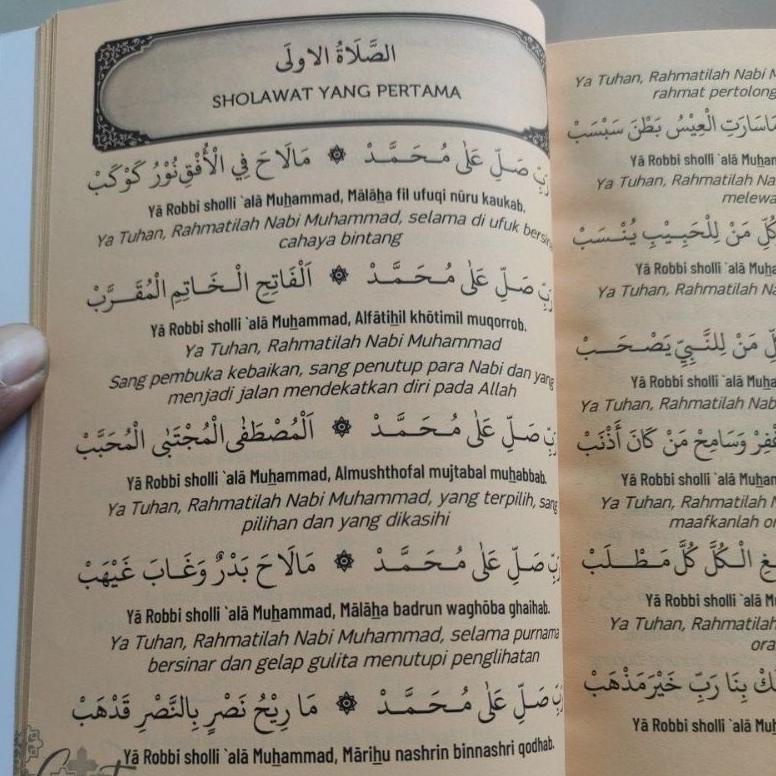 الصَّلَاةُ الاولَى
SHOLAWAT YANG PERTAMA
رَبِّ صَلِّ عَلَى مُحَمَّدْ ۞ مَالَاحَ فِي الْأُفْقِ نُوْرُ كَوْكَبْ
Yā Robbi sholli `alā Muhammad, Mālāha fil ufuqi nūru kaukab.
Ya Tuhan, Rahmatilah Nabi Muhammad, selama di ufuk bersinar
cahaya bintang
رَبِّ صَلِّ عَلَى مُحَمَّدْ ۞ اَلْفَاتِحِ الْخَاتِمِ الْمُقَرَّبْ
Yā Robbi sholli `alā Muhammad, Alfātihil khōtimil muqorrob.
Ya Tuhan, Rahmatilah Nabi Muhammad
Sang pembuka kebaikan, sang penutup para Nabi dan yang
menjadi jalan mendekatkan diri pada Allah
رَبِّ صَلِّ عَلَى مُحَمَّدْ ۞ اَلْمُصْطَفَى الْمُجْتَبَى الْمُحَبَّبْ
Yā Robbi sholli `alā Muhammad, Almushthofal mujtabal muhabbab.
Ya Tuhan, Rahmatilah Nabi Muhammad, yang terpilih, sang
pilihan dan yang dikasihi
رَبِّ صَلِّ عَلَى مُحَمَّدْ ۞ مَالَاحَ بَدْرٌ وَغَابَ غَيْهَبْ
Yā Robbi sholli `alā Muhammad, Mālāha badrun waghōba ghaihab.
Ya Tuhan, Rahmatilah Nabi Muhammad, selama purnama
bersinar dan gelap gulita menutupi penglihatan
رَبِّ صَلِّ عَلَى مُحَمَّدْ ۞ مَا رِيْحُ نَصْرٍ بِالنَّصْرِ قَدْهَبْ
Yā Robbi sholli `alā Muhammad, Mārihu nashrin binnashri qodhab.
Ya Tuhan, Rahmatilah Nabi
rahmat
سَارَتِ الْعِيْسُ بَطْنَ سَبْسَبْ
Yā Robbi sholli `alā
Ya Tuhan, Rahmatilah
كُلِّ مَنْ لِلْحَبِيْبِ يُنْسَبْ
Yā Robbi sholli `alā
Ya Tuhan, Rahmatilah
مَنْ لِلنَّبِيِّ يَصْحَبْ
Yā Robbi sholli `alā
Ya Tuhan, Rahmatilah
وَسَامِحْ مَنْ كَانَ أَذْنَبْ
Yā Robbi sholli `alā
Ya Tuhan, Rahmatilah
maafkanlah
الْكُلَّ كُلَّ مَطْلَبْ
Yā Robbi sholli `alā
Ya Tuhan, Rahmatilah
بِنَا رَبِّ خَيْرَ مَذْهَبْ
Yā Robbi sholli `alā